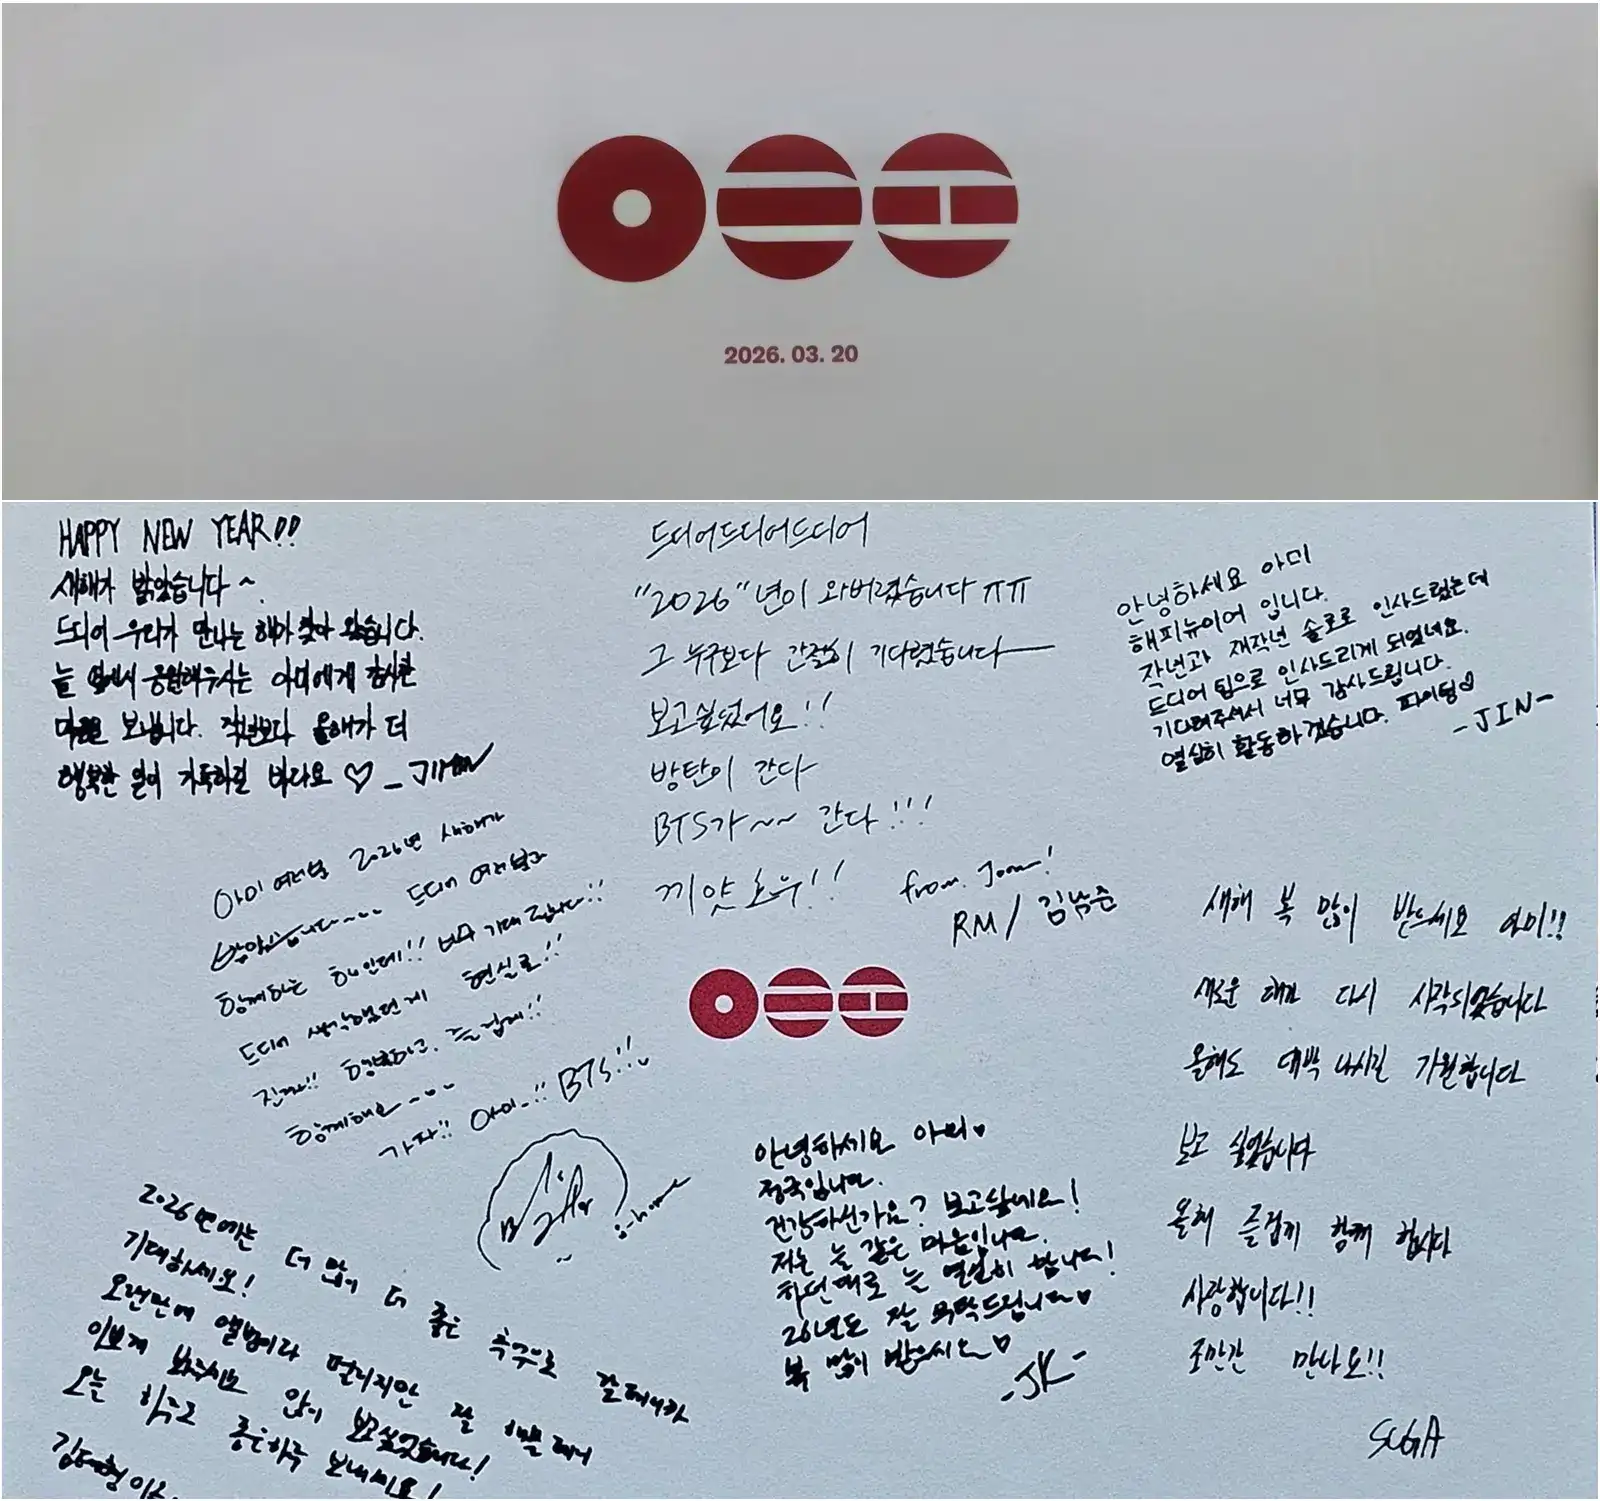 2026. 03. 20
HAPPY NEW YEAR!!
새해가 밝았습니다~
드디어 우리가 만나는 해가 찾아 왔습니다.
늘 옆에서 응원해주시는 아미에게 감사한
마음을 보냅니다. 작년보다 올해가 더
행복한 일이 가득하길 바라요 ♡ - JIMIN
드디어드디어드디어
"2026"년이 와버렸습니다 ㅠㅠ
그 누구보다 간절히 기다렸습니다
보고싶었어요!!
방탄이 간다
BTS가~~ 간다!!!
끼얏호우!!
from. Joon!
RM / 김남준
안녕하세요 아미
해피뉴이어 입니다.
작년과 재작년 솔로로 인사드렸는데
드디어 팀으로 인사드리게 되었네요.
기다려주셔서 너무 감사드립니다.
열심히 활동하겠습니다. 파이팅♡
-JIN-
아미 여러분 2026년 새해가
밝았습니다~ 드디어 여러분과
함께하는 해인데!! 너무 기대됩니다!!
드디어 생각했던게 현실로!!
진짜!! 행복하고, 즐겁게!!
함께해요~
가자!! 아미!! BTS!!
j-hope
새해 복 많이 받으세요 아미!!
새로운 해가 다시 시작되었습니다
올해도 대박 나시길 기원합니다
보고 싶었습니다
올해 즐겁게 함께 합시다
사랑합니다!!
조만간 만나요!!
SUGA
안녕하세요 아미♥
정국입니다.
건강하신가요? 보고싶네요!
저는 늘 같은 마음입니다.
하던대로 늘 열심히 합니다!
26년도 잘 부탁드립니다♥
복 많이 받으시오♡
-JK-
2026년에는 더 많이 더 좋은 추억으로 갈테니까
기대하세요!
오랜만에 앨범이라 떨리지만 잘 해볼테니
이쁘게 봐주시고 많이 보고싶었습니다!
오늘 하루도 좋은하루 보내세요!
김태형